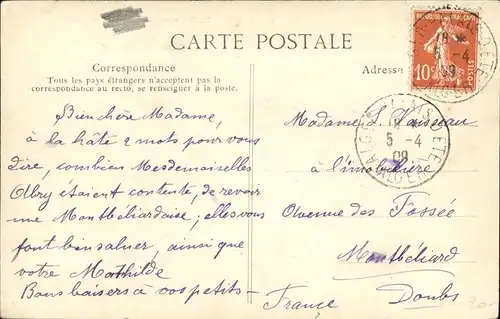 CARTE POSTALE
Correspondance
Tous les pays étrangers n'acceptent pas la
correspondance au recto, se renseigner à la poste.
Adresse
10
POSTES
5 - 4
09
ALGER
Bien chère Madame,
à la hâte 2 mots pour vous
dire, combien Mesdemoiselles
Abry étaient contente, de revoir
une Montbéliardaise; elles vous
font bien saluer, ainsi que
votre Mathilde
Bons baisers à vos petits -
Madame L.
à l'imobilière
Avenue des Fossée
Montbéliard
Doubs
France